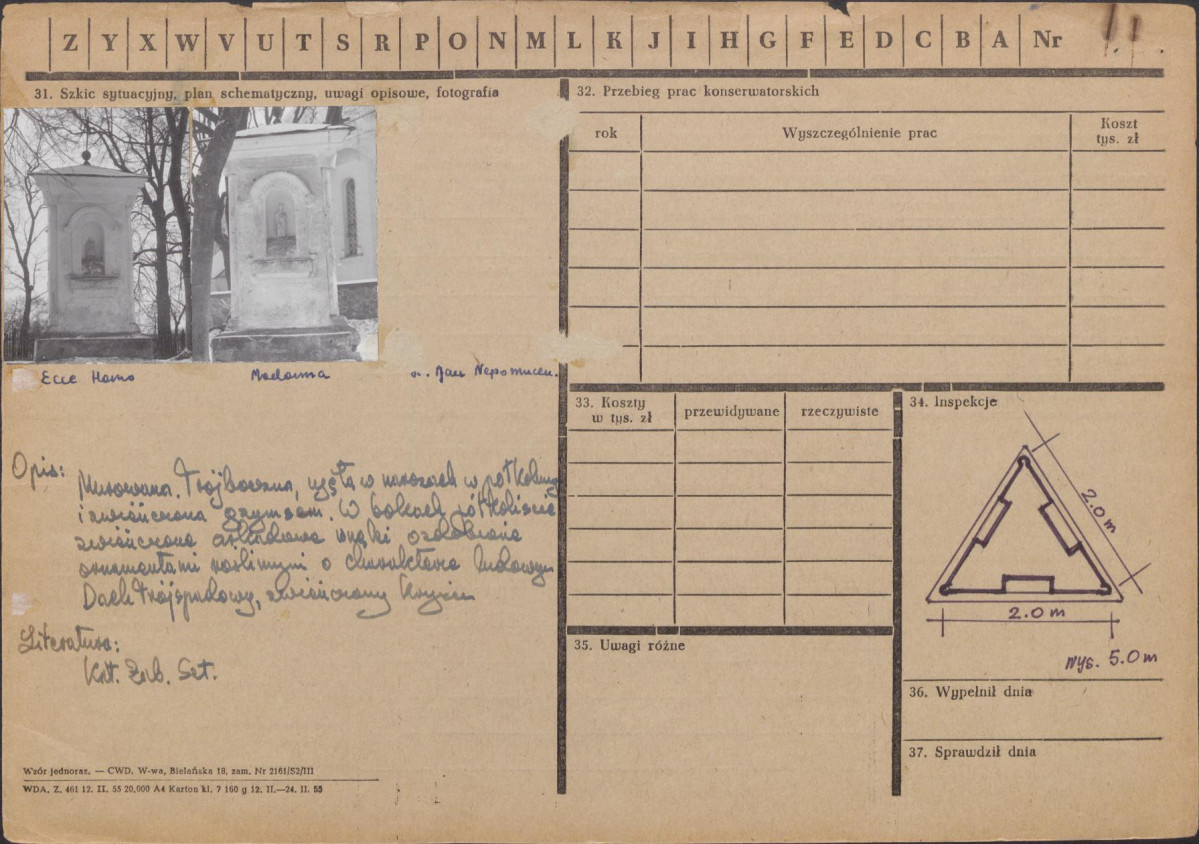 Z Y X W V U T S R P O N M L K J I H G F E D C B A Nr
31. Szkic sytuacyjny, plan schematyczny, uwagi opisowe, fotografia
Ecce Homo Madonna Jan Nepomucen.
Opis: Murowana. Trójboczna, w narożach w półkolumny
i zwieńczona gzymsem. W bokach półkoliście
zwieńczone arkadowe wnęki ozdobione
ornamentami roślinnymi o charakterze ludowym
Dach trójspadowy, zwieńczony krzyżem
Literatura:
Kat. Zab. Szt.
Wzór jednoraz. — CWD. W-wa, Bielańska 18, zam. Nr 2161/S2/III
WDA. Z. 461 12. II. 55 20,000 A4 Karton kl. 7 160 g 12. II.—24. II. 55
32. Przebieg prac konserwatorskich
rok Wyszczególnienie prac Koszt
tys. zł
33. Koszty
w tys. zł przewidywane rzeczywiste
34. Inspekcje
2.0 m
2.0 m
wys. 5.0 m
35. Uwagi różne
36. Wypełnił dnia
37. Sprawdził dnia